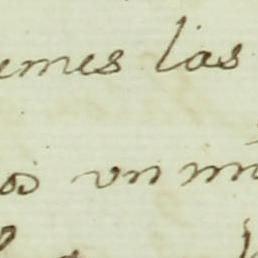 emes las
os vn mi